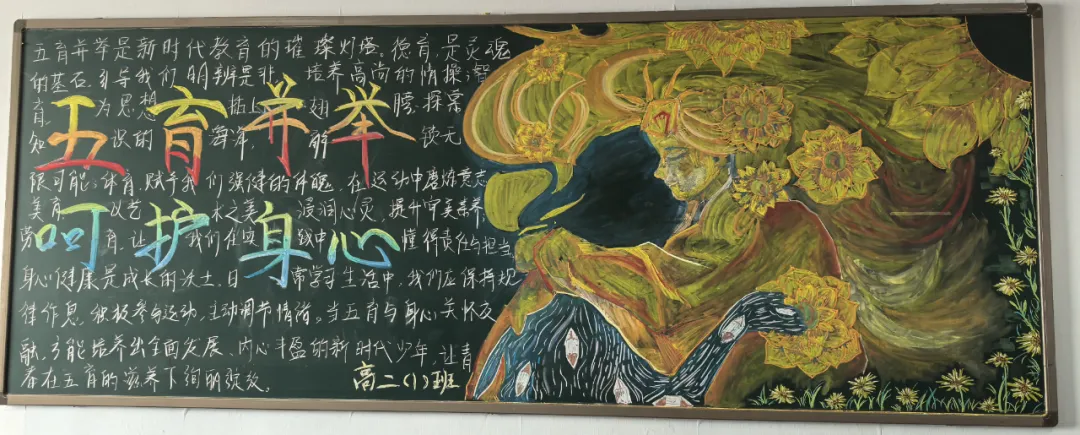 五育并举是新时代教育的璀璨灯盏。德育,是灵魂
的基石,引导我们明辨是非,培养高尚的情操;智
育,为思想插上翅膀,探索
五育并举
知识的海洋,解锁无
限可能;体育,赋予我们强健的体魄,在运动中磨炼意志
美育,以艺术之美,浸润心灵,提升审美素养
呵护身心
劳育,让我们在实践中懂得责任与担当
身心健康是成长的沃土,日常学习生活中,我们应保持规
律作息,积极参与运动,主动调节情绪。当五育与身心关怀交
融,方能培养出全面发展、内心丰盈的新时代少年,让青
春在五育的滋养下绚丽绽放。
高二(1)班